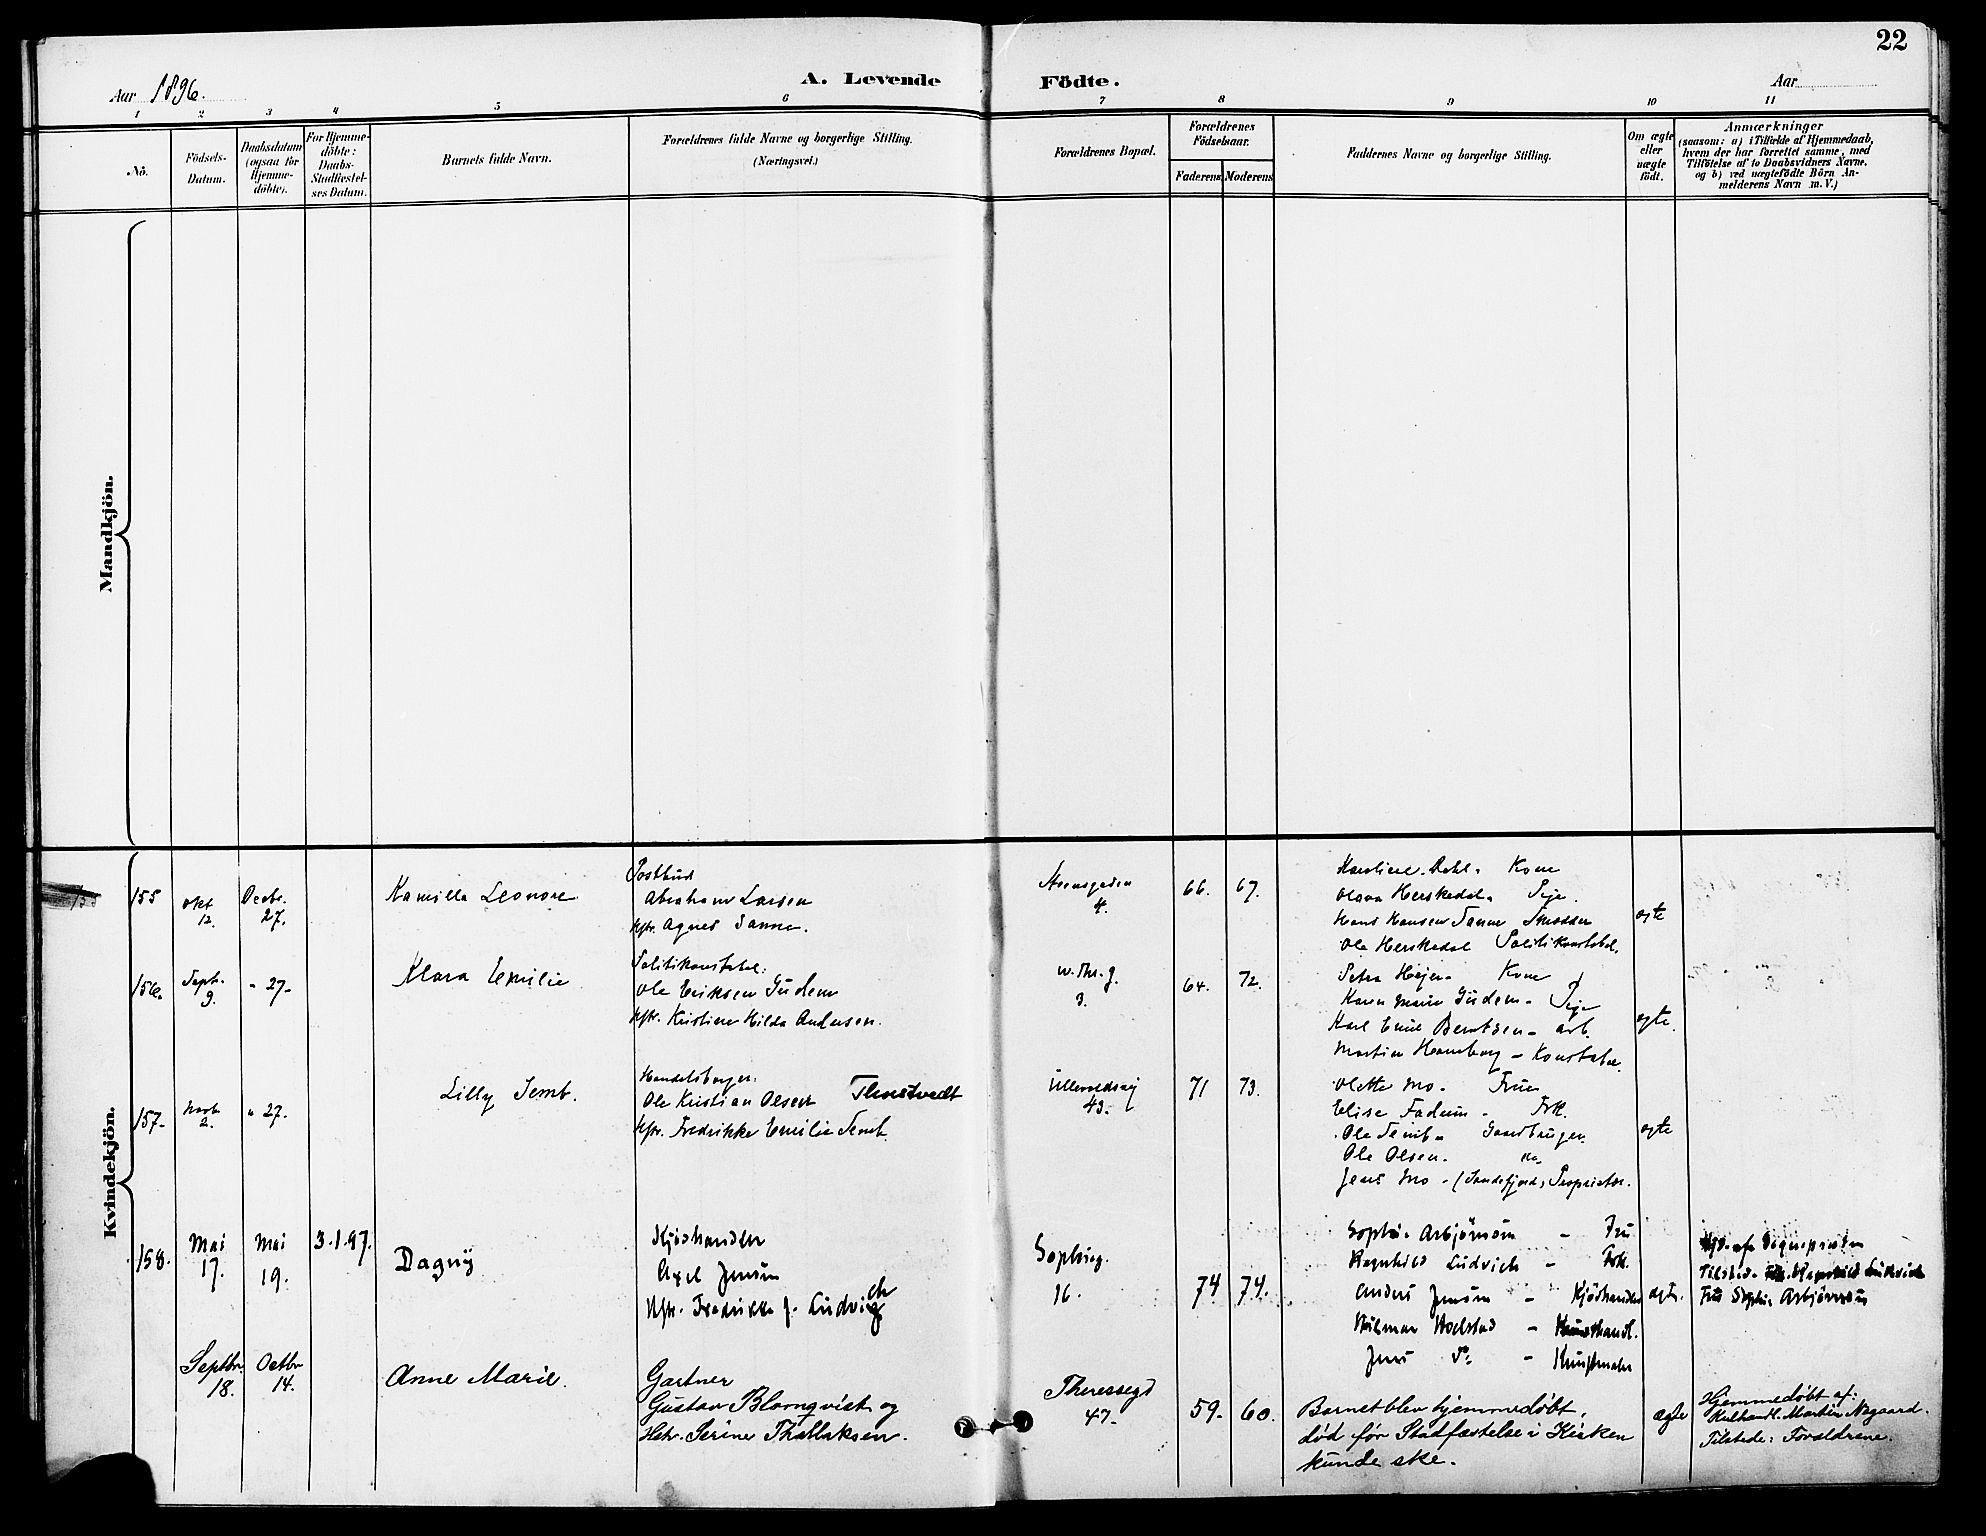 22
Aar 1896.
A. Levende Födte.
Aar
1 2 3 4 5 6 7 8 9 10 11
Nö.
Födsels-
Datum.
Daabsdatum
(ogsaa for
Hjemme-
döbte).
For Hjemme-
döbte:
Daabs-
Stadfæstel-
ses Datum.
Barnets fulde Navn.
Forældrenes fulde Navne og borgerlige Stilling.
(Næringsvei.)
Forældrenes Bopæl.
Forældrenes
Födselsaar.
Faderens Moderens
Faddernes Navne og borgerlige Stilling.
Om ægte
eller
uægte
födt.
Anmærkninger
(saasom: a) i Tilfælde af Hjemmedaab,
hvem der har forrettet samme, med
Tilföielse af to Daabsvidners Navne.
og b) ved uægtefödte Börn An-
melderens Navn m. V.)
Mandkjön.
Kvindekjön.
155
Okt
12.
Decbr.
27.
Kamilla Leonore
Postbud
Abraham Larsen
Hstr. Agnes Sanne.
4.
66. 67.
Karoline Dahl - Kone
Olava Herskedal - Pige.
Hans Hansen Sanne Snedker
Ole Herskedal Politikonstabel.
egte
156.
Septr.
9.
" 27-
Klara Emilie
Politikonstabel.
Ole Eriksen Gudem
Hstr. Kristine Hilda Andersen.
3.
64. 72.
Petra Hejer - Kone
Karen Marie Gudem - Pige
Karl Emil Berntsen - arb.
Martin Hamborg - Konstabel.
egte.
157-
Novb.
2.
" 27.
Lilly Semb.
Handelsborger.
Ole Kristian Olsen Thorstvedt
Hstr. Fredrikke Emilie Semb.
Ullevoldsvej
43.
71 73.
Olette Mo - Frue
Elise Fadum - Frk.
Ole Semb - Gaardbruger
Ole Olsen - do
Jens Mo - (Sandefjord) Proprietær.
egte
158.
Mai
17.
Mai
19.
3.1.97.
Dagny
Kjødhandler
Axel Jensen
Hstr. Fredrikke J. Ludvich
Sophieg.
16.
74 74.
Sophie Asbjörnsen - Fru
Ragnhild Ludvich - Frk.
Anders Jensen - Kjødhandler
Hilmar Hoelstad - Kunsthandl.
Jens do - Kunstmaler
egte.
Hjd. af Sognepresten
Tilstede Frk. Ragnhild Ludvich
Fru Sophie Asbjörnsen
Septbr.
18.
Octbr
14.
Anne Marie.
Gartner
Gustav Blomqvist og
Hstr. Serine Thollaksen.
Theresesgd
47-
59- 60.
Barnet blev hjemmedøbt,
død før Stadfæstelse i Kirken
kunde ske.
ægte
Hjemmedøbt af:
Kulhandl. Martin Nygaard.
Tilstede: Forældrene.